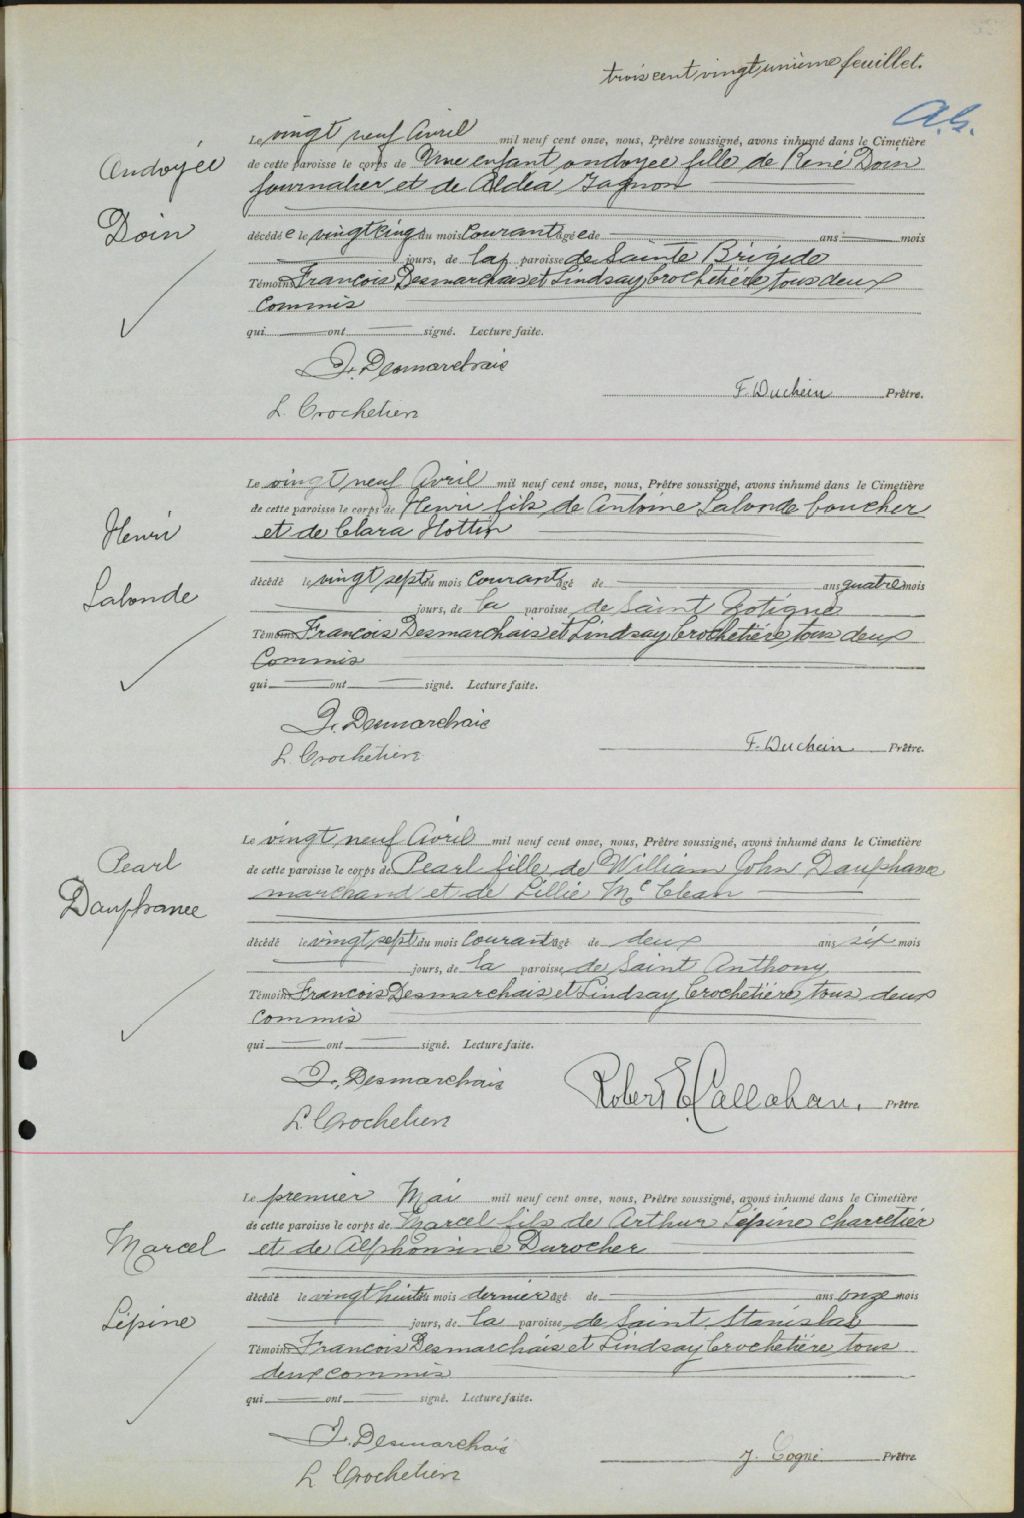 trois cent vingt unième feuillet.
A.G.
Ondoyée
Doin
Le vingt neuf Avril mil neuf cent onze, nous, Prêtre soussigné, avons inhumé dans le Cimetière
de cette paroisse le corps de Une enfant ondoyée fille de René Doin
journalier et de Aldéa Gagnon
décédée le vingt cinq du mois courant agée de ans mois
jours, de la paroisse de Sainte Brigide
Témoins François Desmarchais et Lindsay Crochetière, tous deux
commis
qui ont signé. Lecture faite.
F. Desmarchais
F. Duchein Prêtre.
L. Crochetière
Henri
Lalonde
Le vingt neuf Avril mil neuf cent onze, nous, Prêtre soussigné, avons inhumé dans le Cimetière
de cette paroisse le corps de Henri fils de Antoine Lalonde boucher
et de Clara Hottin
décédé le vingt sept du mois courant agé de ans quatre mois
jours, de la paroisse de Saint Zotique
Témoins François Desmarchais et Lindsay Crochetière, tous deux
commis
qui ont signé. Lecture faite.
F. Desmarchais
F. Duchein Prêtre.
L. Crochetière
Pearl
Dauphranee
Le vingt neuf Avril mil neuf cent onze, nous, Prêtre soussigné, avons inhumé dans le Cimetière
de cette paroisse le corps de Pearl fille de William John
marchand et de Lillie Mc Clean
décédé le vingt sept du mois courant agé de deux ans six mois
jours, de la paroisse de Saint Anthony
Témoins François Desmarchais et Lindsay Crochetière, tous deux
commis
qui ont signé. Lecture faite.
F. Desmarchais
Robert E. Callahan. Prêtre
L. Crochetière
Marcel
Lépine
Le premier Mai mil neuf cent onze, nous, Prêtre soussigné, avons inhumé dans le Cimetière
de cette paroisse le corps de Marcel fils de Arthur Lépine charretier
et de Alphonsine Durocher
décédé le vingt huit du mois dernier agé de ans onze mois
jours, de la paroisse de Saint Stanislas
Témoins François Desmarchais et Lindsay Crochetière, tous
deux commis
qui ont signé. Lecture faite.
F. Desmarchais
J. Cogné Prêtre
L. Crochetière